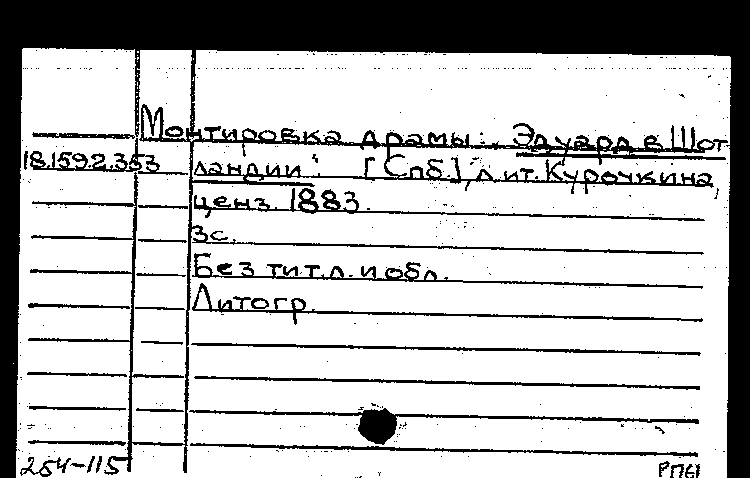 Монтировка драмы: "Эдуард в Шот-
18.159.2.353 ландии". [Спб], лит. Курочкина,
ценз. 1883.
3с.
Без тит. л. и обл.
Литогр.
254-115 РП61